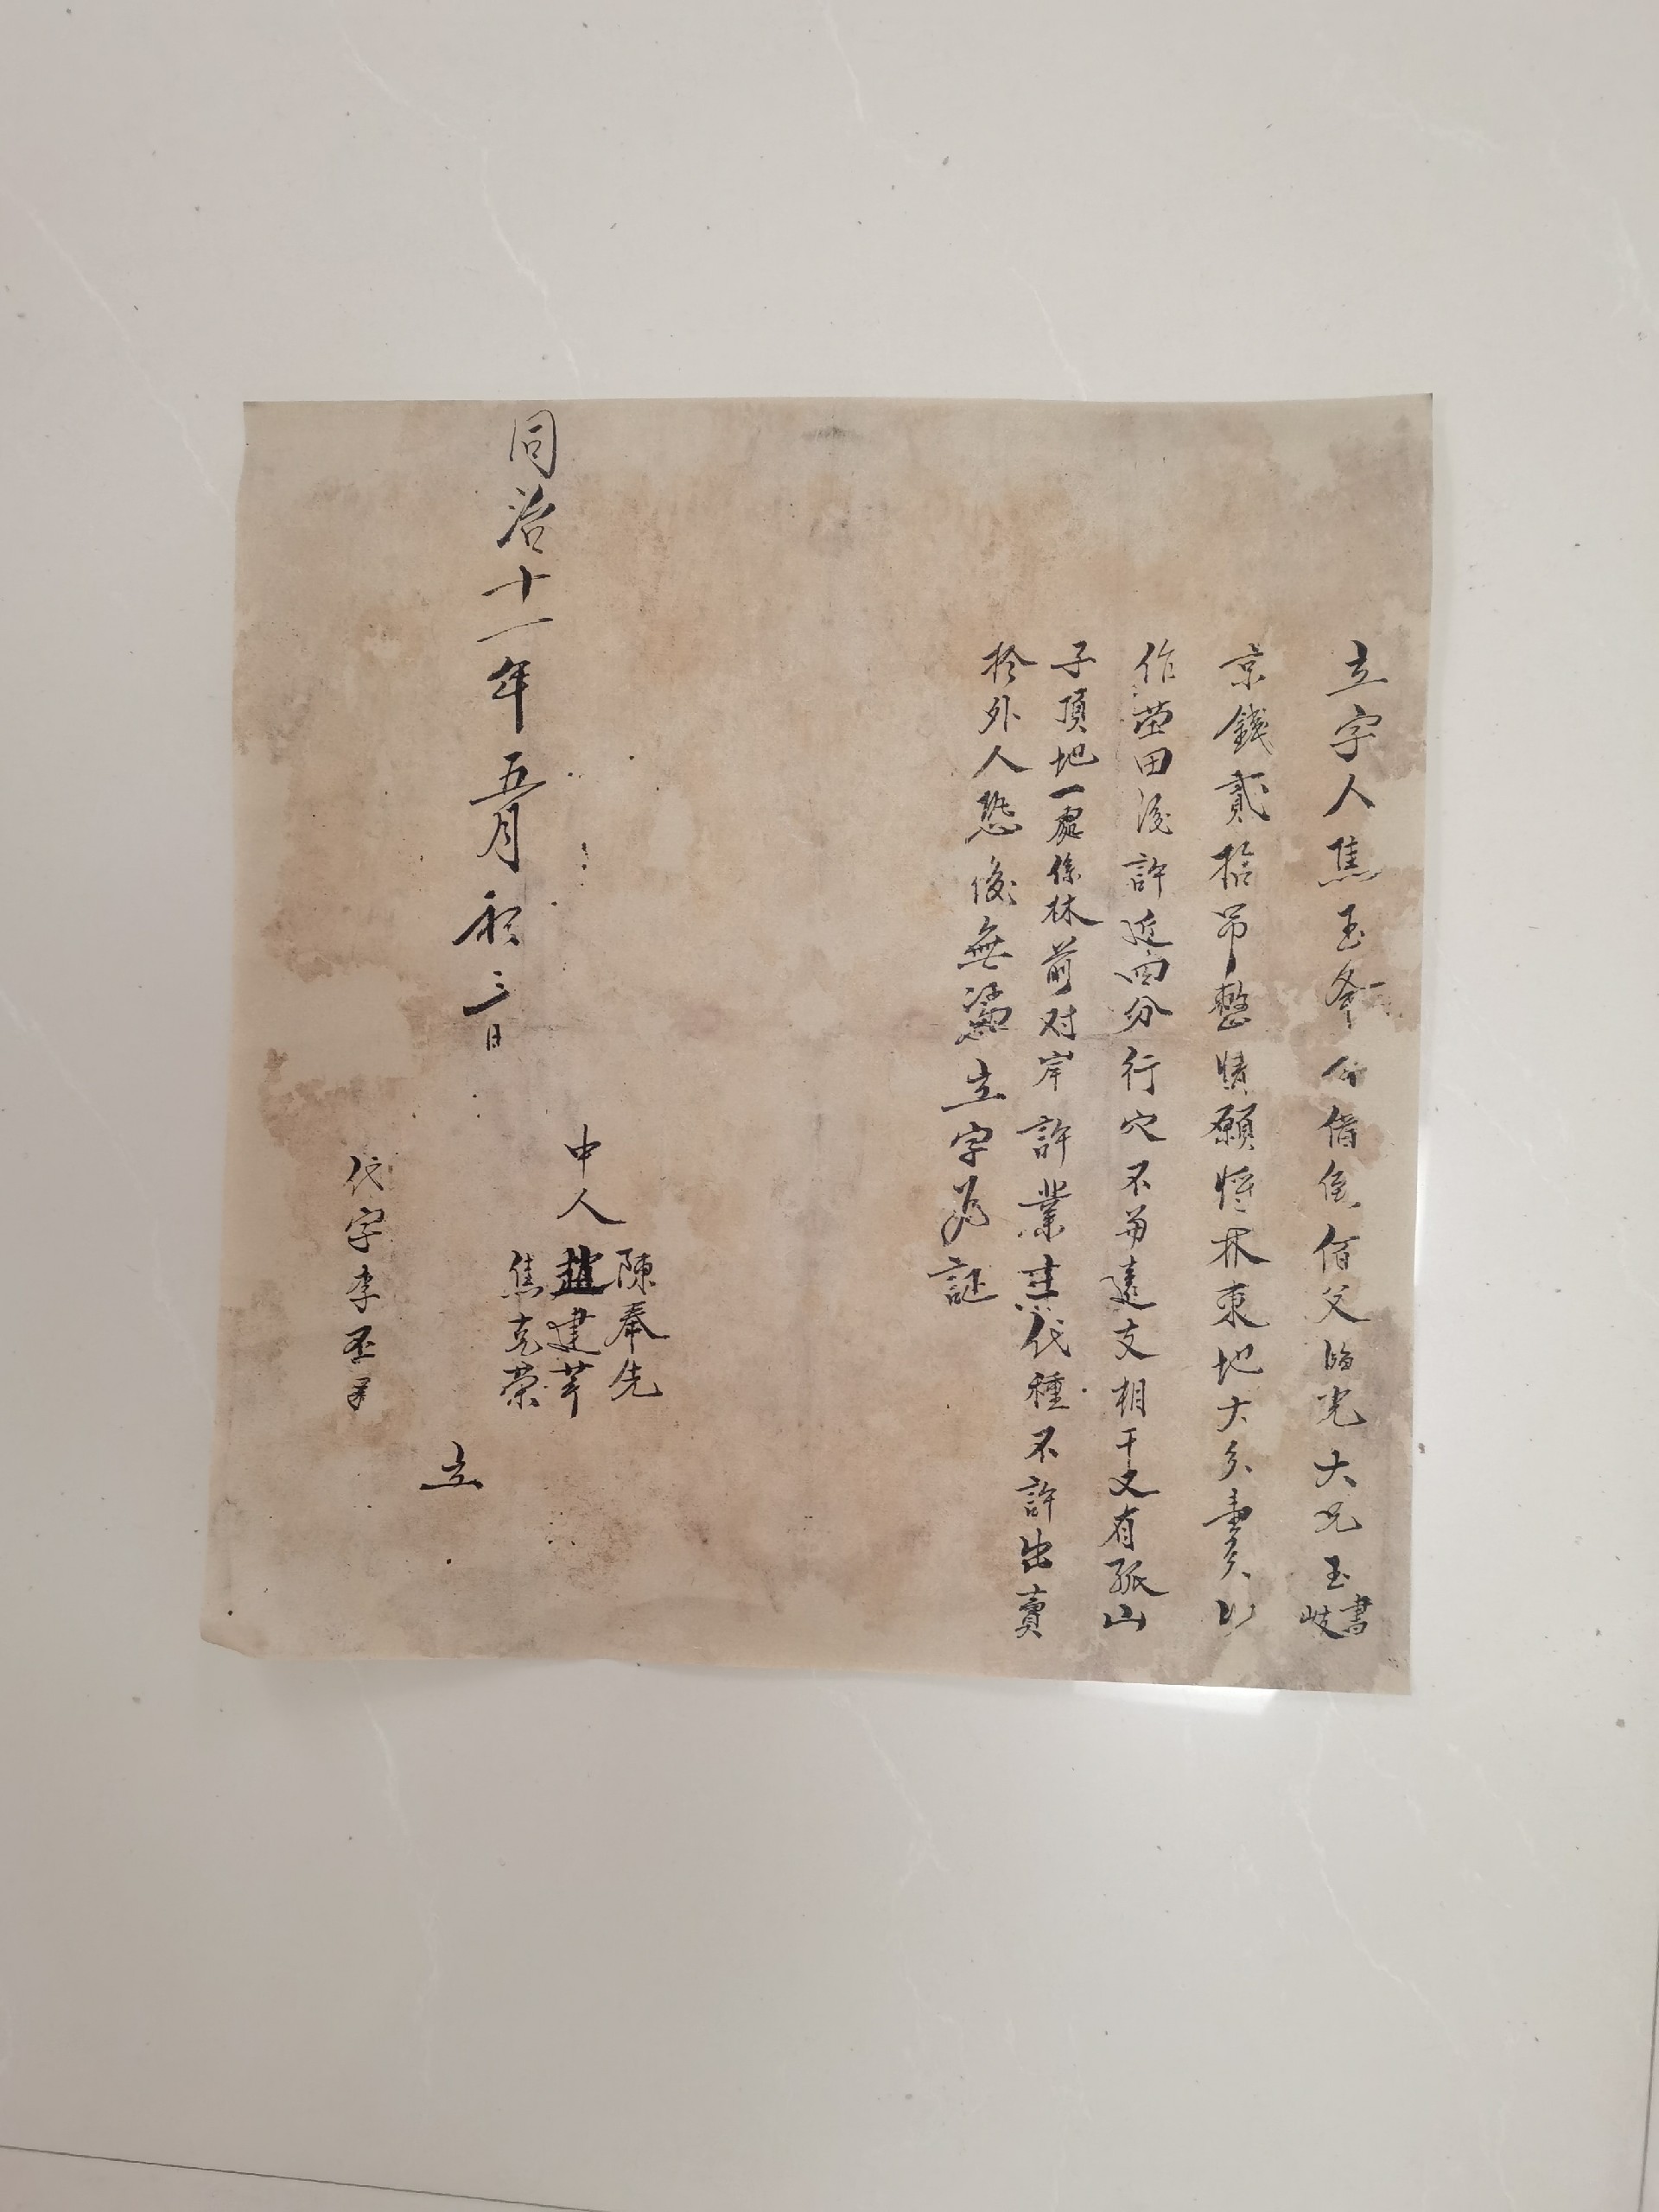 立字人焦玉峯今借到伯父臨光大兄玉書岐
京錢貳拾吊整情願將林東地大分賣以
作茔田後許近四分行穴不與遠支相干又有孤山
子頂地一處係林前对岸許業主代種不許出賣
於外人恐後無憑立字为証
中人
陳奉先
趙建芊
焦克荣
同治十一年五月初三日
立
代字李